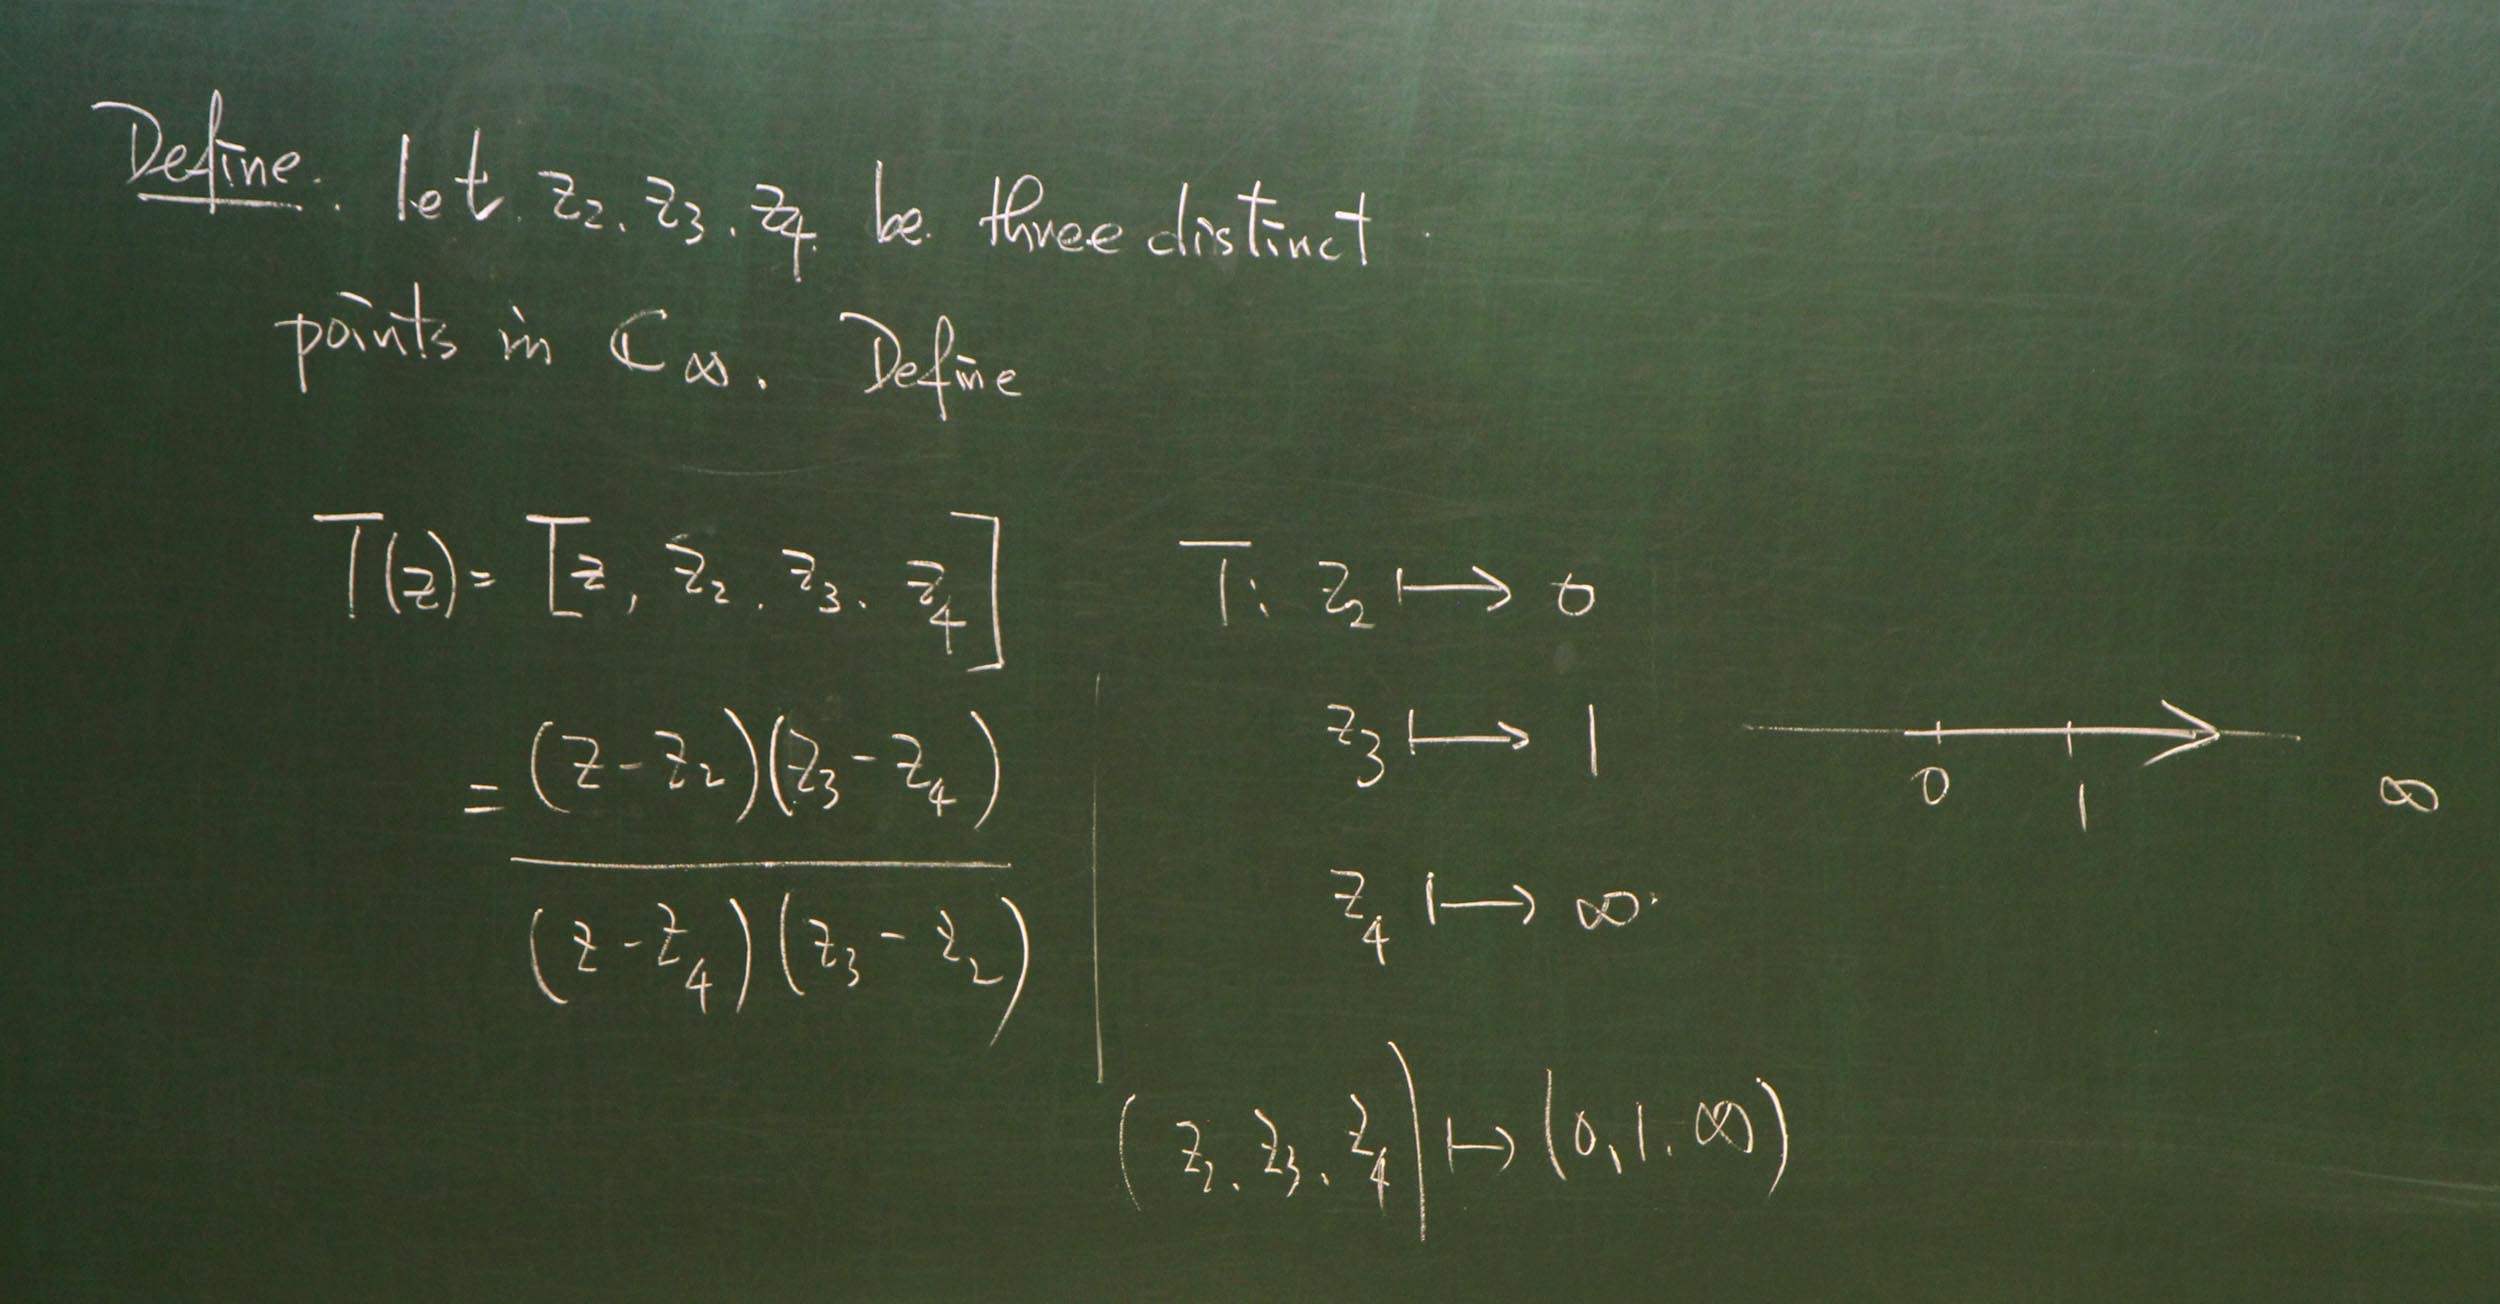 Define. let z₂, z₃, z₄ be three distinct
points in ℂ∞. Define
T(z) = [z, z₂, z₃, z₄]
= (z - z₂)(z₃ - z₄) / (z - z₄)(z₃ - z₂)
T: z₂ ↦ 0
z₃ ↦ 1
z₄ ↦ ∞
(z₂, z₃, z₄) ↦ (0, 1, ∞)
0 1 ∞